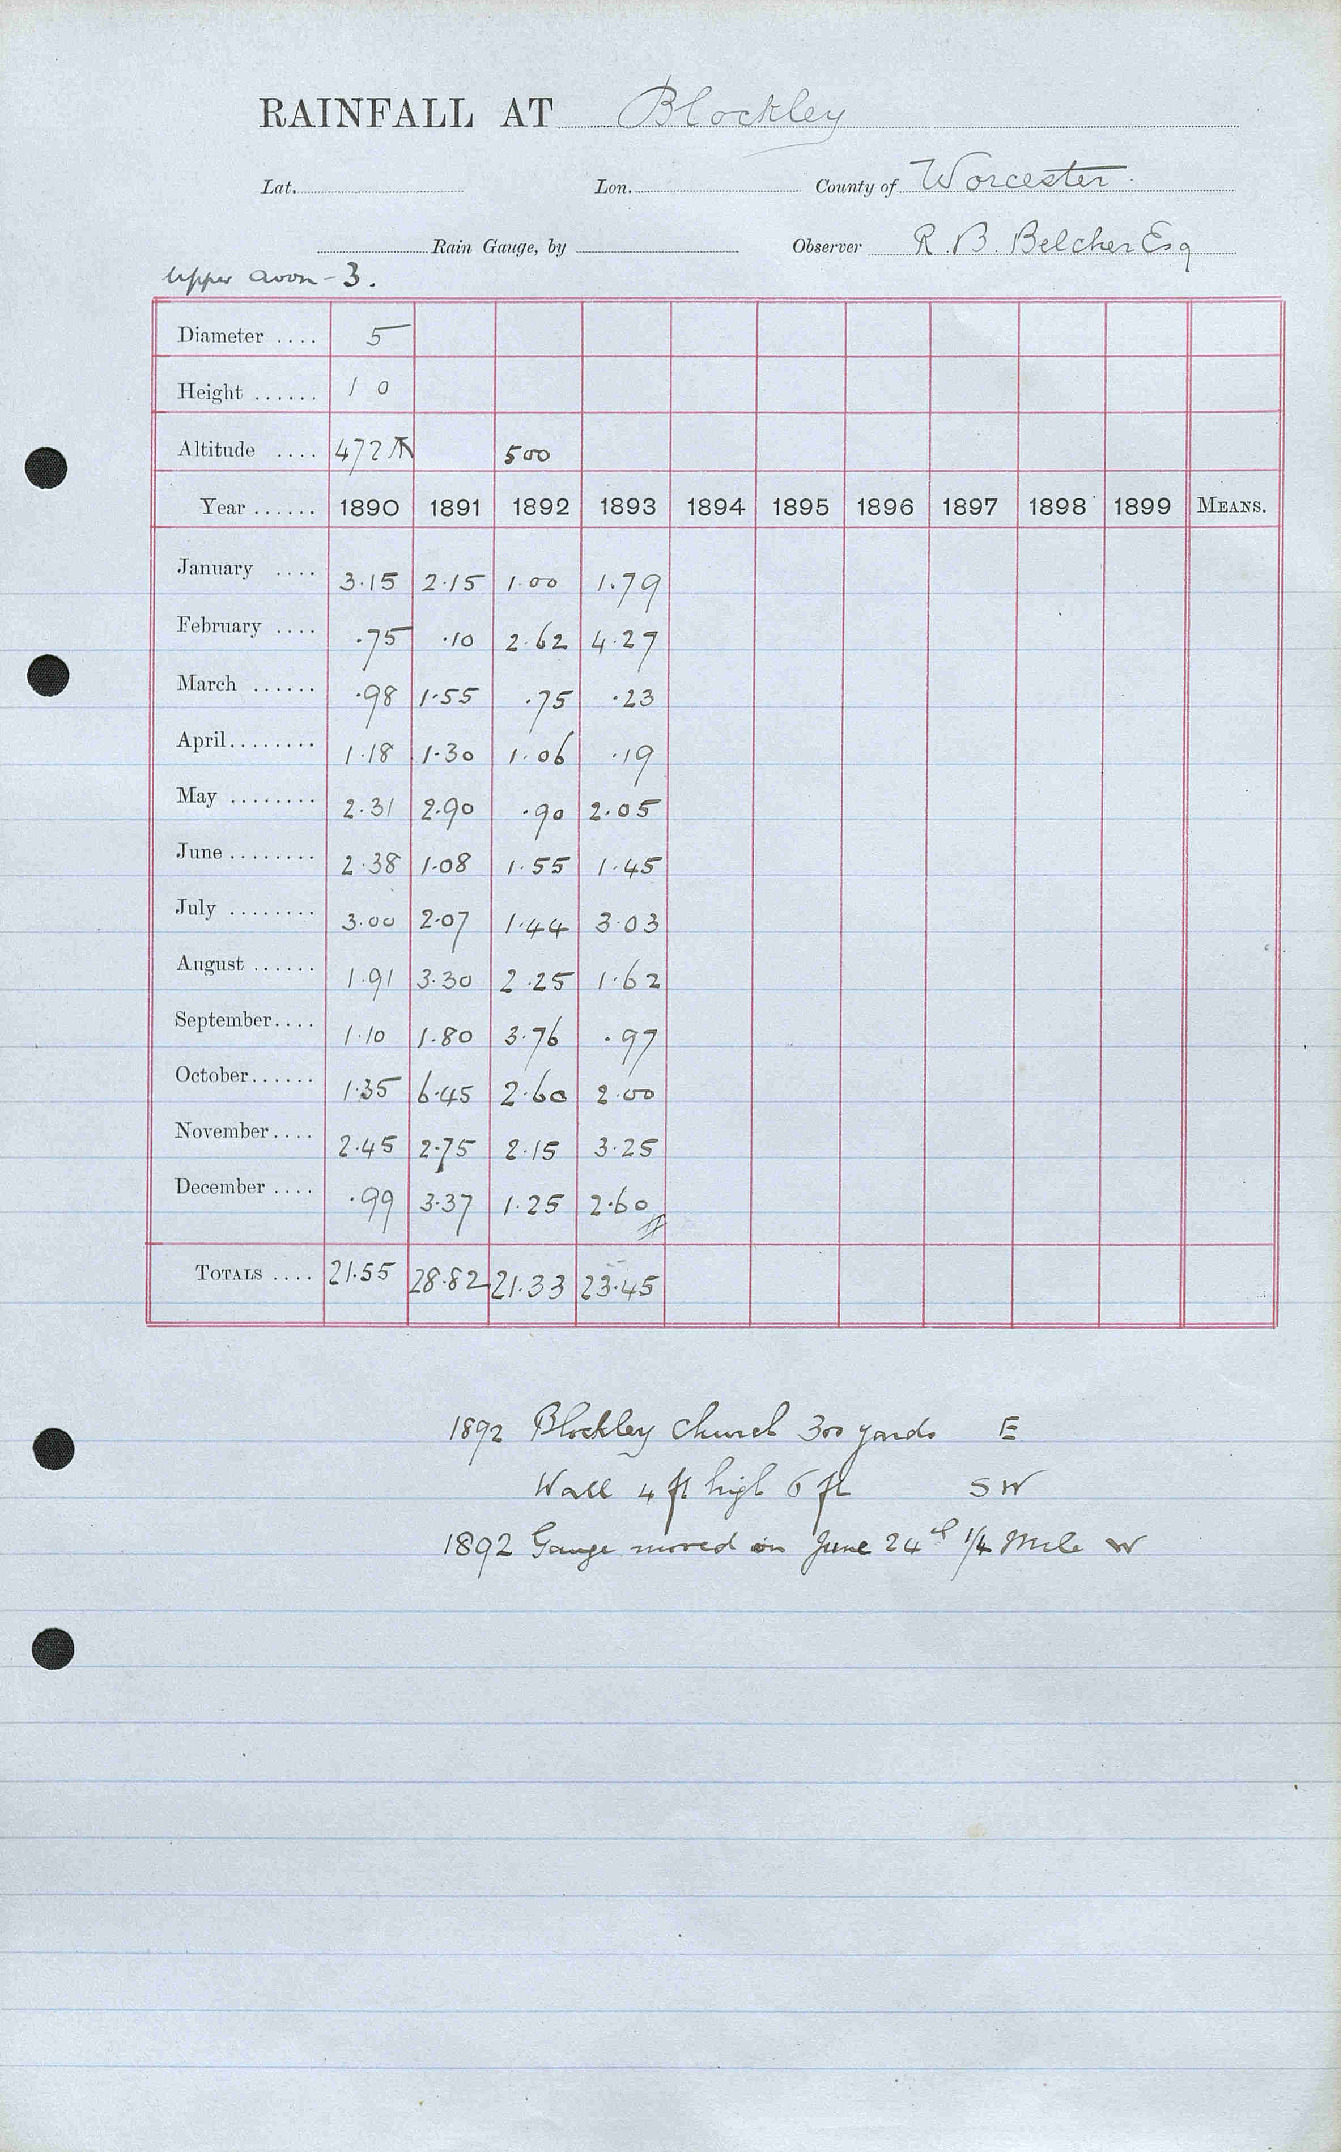 RAINFALL AT Blockley
Lat. Lon. County of Worcester.
Rain Gauge, by Observer R. B. Belcher Esq
Upper Avon - 3.
Diameter .... 5
Height ...... 1 0
Altitude .... 472 500
Year ...... 1890 1891 1892 1893 1894 1895 1896 1897 1898 1899 MEANS.
January .... 3.15 2.15 1.00 1.79
February .... .75 .10 2.62 4.27
March ...... .98 1.55 .75 .23
April........ 1.18 1.30 1.06 .19
May ........ 2.31 2.90 .90 2.05
June ........ 2.38 1.08 1.55 1.45
July ........ 3.00 2.07 1.44 3.03
August ...... 1.91 3.30 2.25 1.62
September.... 1.10 1.80 3.76 .97
October...... 1.35 6.45 2.60 2.00
November.... 2.45 2.75 2.15 3.25
December .... .99 3.37 1.25 2.60
TOTALS .... 21.55 28.82 21.33 23.45
1892 Blockley Church 300 yards E
Wall 4 ft high 6 ft SW
1892 Gauge moved on June 24th 1/4 Mile W